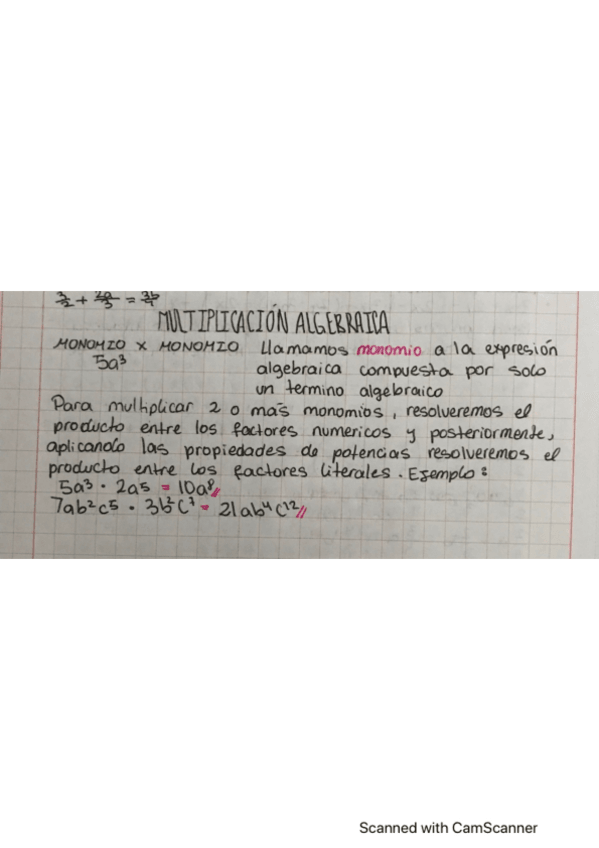 MULTIPLICACIÓN ALGEBRAICA
MONOMIO X MONOMIO Llamamos monomio a la expresión
5a³ algebraica compuesta por solo
un termino algebraico
Para multiplicar 2 o más monomios, resolveremos el
producto entre los factores numericos y posteriormente,
aplicando las propiedades de potencias resolveremos el
producto entre los factores literales. Ejemplo:
5a³ · 2a5 = 10a⁸//
7ab²c5 · 3b²c⁷ = 21ab⁴c¹²//
Scanned with CamScanner